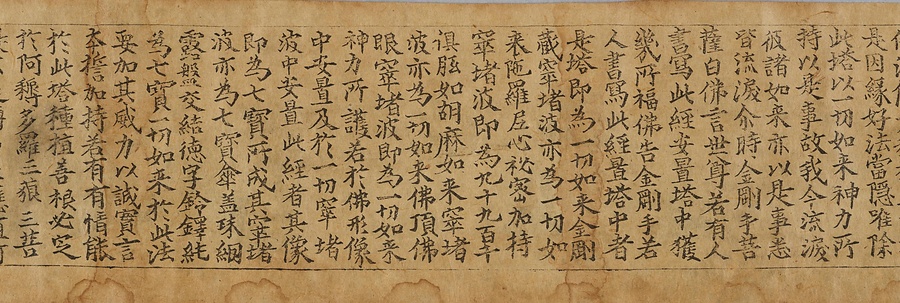 是因緣好法當隱唯除
此塔以一切如来神力所
持以是事故我今流淚
彼諸如来亦以是事悉
皆流淚尒時金剛手菩
薩白佛言世尊若有人
書寫此經安置塔中獲
幾所福佛告金剛手若
人書寫此經置塔中者
是塔即為一切如来金剛
藏窣堵波亦為一切如
来陁羅尼心祕密加持
窣堵波即為九十九百千
俱胝如胡麻如来窣堵
波亦為一切如来佛頂佛
眼窣堵波即為一切如来
神力所護若於佛形像
中安置及於一切窣堵
波中安置此經者其像
即為七寶所成其窣堵
波亦為七寶傘蓋珠網
露盤交結德字鈴鐸純
為七寶一切如来於此法
要加其威力以誠實言
本誓加持若有有情能
於此塔種植善根必定
於阿耨多羅三藐三菩